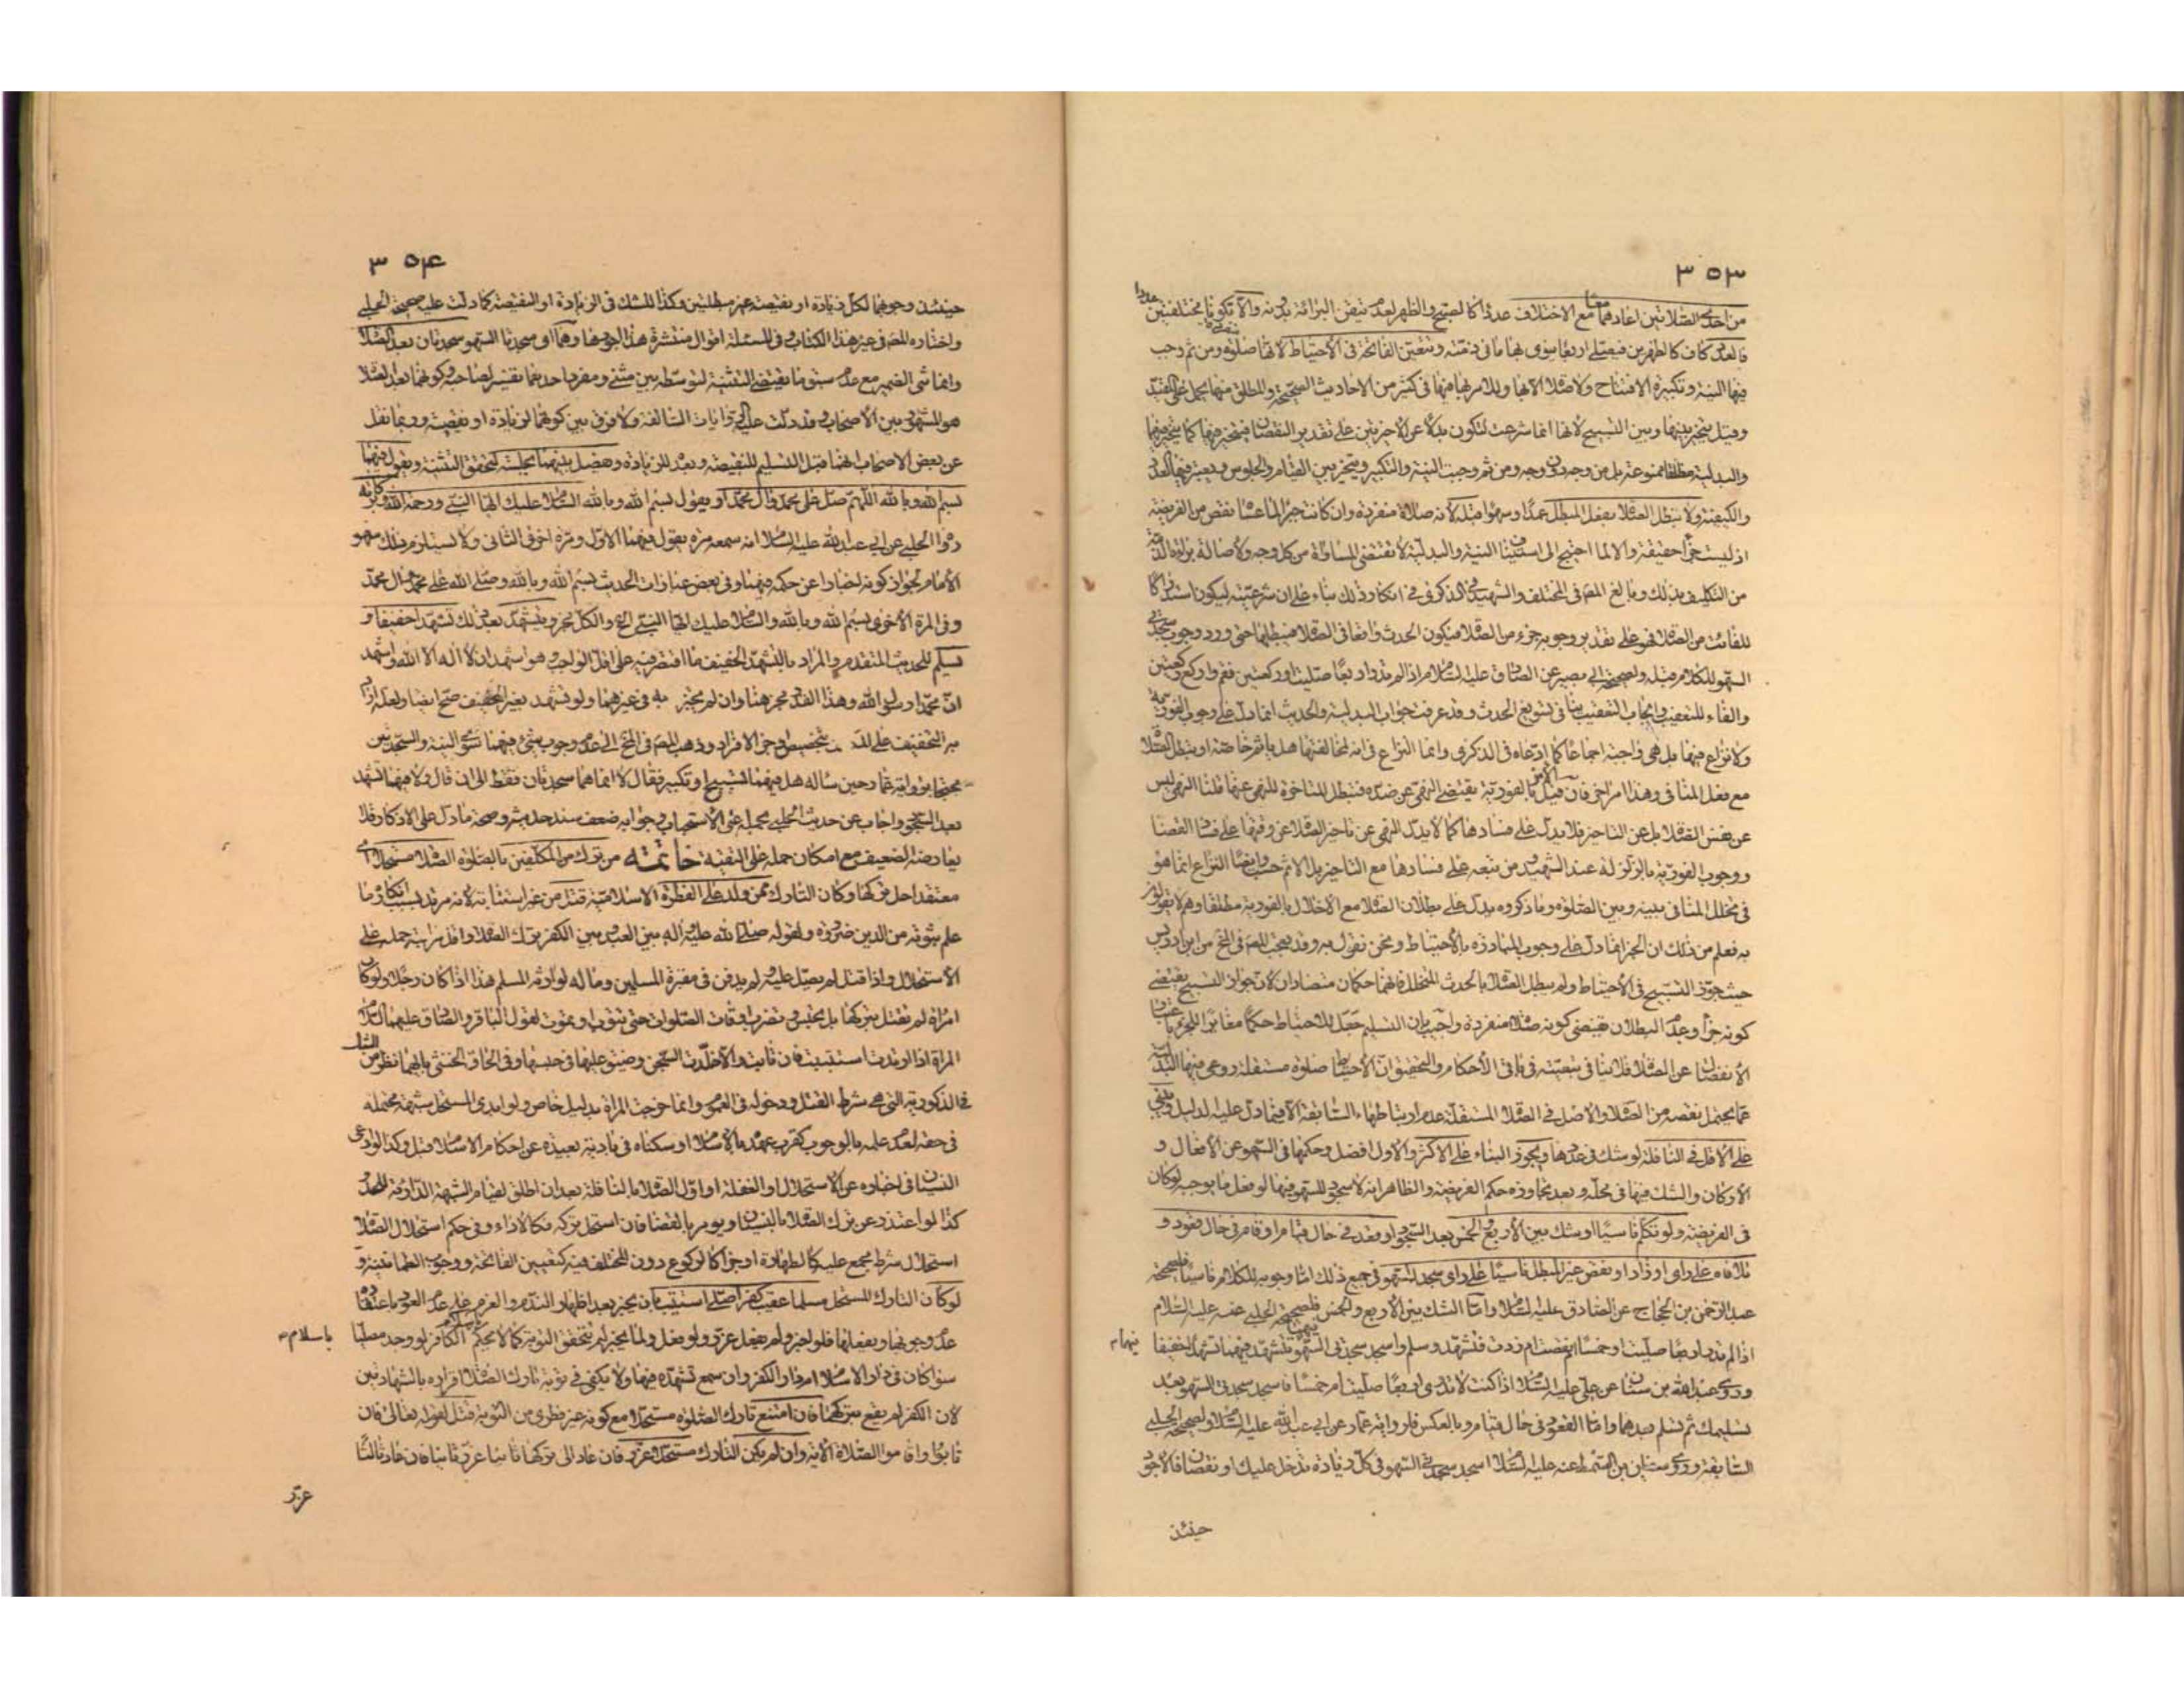 ٣٥٣
من احدى الصلاتين اعادهما معا مع الاختلاف عددا كالصبح والظهر لعدم تيقن البرائة بدونه والا تكونا مختلفتين
فالعدد كاف كالظهرين فيصلي اربعا ينوي بها ما في ذمته وتتعين الفاتحة في الاحتياط لانها صلوة ومن ثم وجب
فيها النية وتكبيرة الافتتاح ولا صلاة الا بها وللامر بها فيها في كثير من الاحاديث الصحيحة والمطلق منها يحمل على المقيد
وقيل يتخير بينها وبين التسبيح لانها انما شرعت لتكون بدلا عن الاخيرتين على تقدير النقصان فيتخير فيها كما يتخير فيهما
والبدلية مطلقا ممنوعة بل من وجه دون وجه ومن ثم وجبت النية والتكبير ويتخير بين القيام والجلوس ويعتبر فيها العدد
والكيفية ولا تبطل الصلاة بفعل المبطل عمدا وسهوا قبله لانه صلاة منفردة وان كانت جبرا لما عساه نقص من الفريضة
اذ ليست جزءا حقيقة والا لما احتيج الى استيناف النية والبدلية لا تقتضي المساواة من كل وجه ولاصالة برائة الذمة
من التكليف بذلك وبالغ المصنف في المختلف والشهيد في الذكرى في انكار ذلك بناء على ان شرعيته ليكون استدراكا
للفائت من الصلاة فهو على تقدير وجوبه جزء من الصلاة فيكون الحدث واقعا في الصلاة فيبطلها حتى ورد وجوب سجدتي
السهو للكلام قبله ولصحيحة ابي بصير عن الصادق عليه السلام اذا لم تدر اربعا صليت او ركعتين فقم واركع ركعتين
والفاء للتعقيب وايجاب التعقيب ينافي تسويغ الحدث وقد عرفت جواب البدلية والحديث انما دل على وجوب الفورية
ولا نزاع فيها بل هي واجبة اجماعا كما ادعاه في الذكرى وانما النزاع في انه لمخالفتها هل ياثم خاصة او يبطل الصلاة
مع فعل المنافي وهذا امر اخر فان قيل الامر بالفورية يقتضي النهي عن ضده فتبطل المتاخرة للنهي عنها قلنا النهي ليس
عن نفس الصلاة بل عن التاخير فلا يدل على فسادها كما لا يدل النهي عن تاخير الصلاة عن وقتها على فساد القضا
ووجوب الفورية بالزلزلة عند الشهيد ومن تبعه على فسادها مع التاخير بل الاثم حسب وايضا النزاع انما هو
في تخلل المنافي بينه وبين الصلوة وما ذكروه يدل على بطلان الصلاة مع الاخلال بالفورية مطلقا وهم لا يقولون
به فعلم من ذلك ان الخبر انما دل على وجوب المبادرة بالاحتياط ونحن نقول به وقد تعجب المصنف في المخ من ابن ادريس
حيث جوز التسبيح في الاحتياط ولم يبطل الصلاة بالحدث المتخلل فانهما حكمان متضادان لان جواز التسبيح يقتضي
كونه جزءا وعدم البطلان يقتضي كونه صلاة منفردة واجيب بان التسليم جعل للاحتياط حكما مغايرا للجزء باعتبار
الانفصال عن الصلاة فلا ينافي تبعيته في باقي الاحكام والتحقيق ان الاحتياط صلوة مستقلة روعي فيها البدلية
عما يحتمل نقصه من الصلاة والاصل في الصلاة المستقلة عدم ارتباطها بالسابقة الا فيما دل عليه الدليل ويبني
على الاقل في النافلة لو شك في عددها ويجوز البناء على الاكثر والاول افضل وحكمها في السهو عن الافعال و
الاركان والشك فيها في محله وبعد تجاوزه حكم الفريضة والظاهر انه لا سجود للسهو فيها لو فعل ما يوجبه لو كان
في الفريضة ولو تكلم ناسيا او شك بين الاربع والخمس بعد السجود او قعد في حال قيام او قام في حال قعود و
تلافاه على راي او زاد او نقص غير المبطل ناسيا على راي سجد للسهو في جميع ذلك اما وجوبه للكلام ناسيا فلصحيحة
عبد الرحمن بن الحجاج عن الصادق عليه السلام واما الشك بين الاربع والخمس فلصحيحة الحلبي عنه عليه السلام
اذا لم تدر اربعا صليت او خمسا ام نقصت ام زدت فتشهد وسلم واسجد سجدتي السهو تتشهد فيهما تشهدا خفيفا
وروى عبد الله بن سنان عن علي عليه السلام اذا كنت لا تدري اربعا صليت ام خمسا فاسجد سجدتي السهو بعد
تسليمك ثم تسلم بعدهما واما القعود في حال قيام وبالعكس فلرواية عمار عن ابي عبد الله عليه السلام ولصحيحة الحلبي
السابقة وروى سفيان بن السمط عنه عليه السلام اسجد سجدتي السهو في كل زيادة تدخل عليك او نقصان فالاجود
حينئذ
٣٥٤
حينئذ وجوبهما لكل زيادة او نقيصة غير مبطلتين وكذا للشك في الزيادة او النقيصة كما دلت عليه صحيحة الحلبي
واختاره المصنف في غير هذا الكتاب وفي المسئلة اقوال منتشرة هذا اجودها وهما اي سجدتا السهو سجدتان بعد الصلاة
وانما ثنى الضمير مع عدم سبق ما يقتضي التثنية لتوسطه بين مثنى ومفرد احدهما تفسير لصاحبه وكونهما بعد الصلاة
هو المشهور بين الاصحاب وقد دلت عليه الروايات السالفة ولا فرق بين كونهما لزيادة او نقيصة وربما نقل
عن بعض الاصحاب انهما قبل التسليم للنقيصة وبعد للزيادة ويفصل بينهما بجلسة لتحقق التثنية ويقول فيهما
بسم الله وبالله اللهم صل على محمد وال محمد او يقول بسم الله وبالله السلام عليك ايها النبي ورحمة الله وبركاته
رواه الحلبي عن ابي عبد الله عليه السلام انه سمعه مرة يقول فيهما الاول ومرة اخرى الثاني ولا يستلزم ذلك سهو
الامام لجواز كونه اخبارا عن حكمه فيهما وفي بعض عبارات الحديث بسم الله وبالله وصلى الله على محمد وال محمد
وفي المرة الاخرى بسم الله وبالله والسلام عليك ايها النبي الخ والكل مجز ويتشهد بعد ذلك تشهدا خفيفا و
يسلم للحديث المتقدم والمراد بالتشهد الخفيف ما اقتصر فيه على اقل الواجب وهو اشهد ان لا اله الا الله واشهد
ان محمدا رسول الله وهذا القدر مجز هنا وان لم يجتز به في غيرهما ولو تشهد بغير الخفيف صح ايضا ولعله اراد
به التخفيف على المصلي بتخصيص اخر الافراد وذهب المصنف في المخ الى عدم وجوب شئ فيهما سوى النية والسجدتين
محتجا برواية عمار حين ساله هل فيهما تسبيح او تكبير فقال لا انما هما سجدتان فقط الى ان قال ولا فيهما تشهد
بعد السجود واجاب عن حديث الحلبي بحمله على الاستحباب وجوابه ضعف سند حديثه وصحة ما دل على الاذكار فلا
يعارضه الضعيف مع امكان حمله على التقية خاتمة من ترك من المكلفين بالصلوة الصلاة مستحلا اي
معتقدا حل تركها وكان التارك ممن ولد على الفطرة الاسلامية قتل من غير استتابة لانه مرتد بسبب انكاره ما
علم ثبوته من الدين ضرورة ولقوله صلى الله عليه واله بين العبد وبين الكفر ترك الصلاة واقل مراتبه حمله على
الاستحلال واذا قتل لم يصل عليه ولم يدفن في مقبرة المسلمين وماله لوارثه المسلم هذا اذا كان رجلا ولو كان
امراة لم تقتل بتركها بل تحبس وتضرب اوقات الصلوات حتى تتوب او تموت لقول الباقر والصادق عليهما السلام
المراة اذا ارتدت استتيبت فان تابت والا خلدت السجن وضيق عليها في حبسها وفي الحاق الخنثى بايهما نظر من الشك
في الذكورية التي هي شرط القتل ودخوله في العموم وانما خرجت المراة بدليل خاص ولو ابدى المستحل شبهة محتملة
في حقه لعدم علمه بالوجوب كقرب عهده بالاسلام او سكناه في بادية بعيدة عن احكام الاسلام قبل وكذا لو ادعى
النسيان في اخباره عن الاستحلال او الغفلة او اول الصلاة بالنافلة بعد ان اطلق لقيام الشبهة الدارئة للحد
كذا لو اعتذر عن ترك الصلاة بالنسيان ويومر بالقضا فان استحل تركه فكالاداء وفي حكم استحلال الصلاة
استحلال شرط مجمع عليه كالطهارة او جزء كالركوع دون المختلف فيه كتعيين الفاتحة ووجوب الطمانينة و
لو كان التارك المستحل مسلما عقيب كفر اصلي استتيب بان يخبر بعد اظهار الندم والعزم على عدم العود باعتقاده
عدم وجوبها ويفعلها فلو اخبر ولم يفعل عزر ولو فعل ولما يخبر لم تتحقق التوبة كما لا يحكم باسلام الكافر لو وجد مصليا
سواء كان في دار الاسلام ام دار الكفر وان سمع تشهده فيها ولا يكفي في توبة تارك الصلاة اقراره بالشهادتين
لان الكفر لم يقع بتركهما فان امتنع تارك الصلوة مستحلا مع كونه غير فطري من التوبة قتل لقوله تعالى فان
تابوا واقاموا الصلاة الاية وان لم يكن التارك مستحلا عزر فان عاد الى تركها ثانيا عزر ثانيا فان عاد ثالثا
عزر